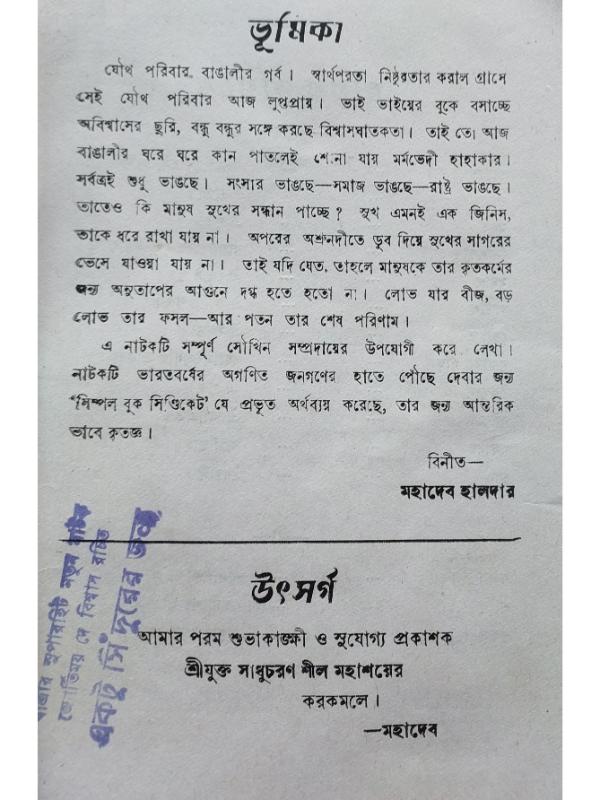 ভূমিকা
যৌথ পরিবার বাঙালীর গর্ব। স্বার্থপরতা নিষ্ঠুরতার করাল গ্রাসে
সেই যৌথ পরিবার আজ লুপ্তপ্রায়। ভাই ভাইয়ের বুকে বসাচ্ছে
অবিশ্বাসের ছুরি, বন্ধু বন্ধুর সঙ্গে করছে বিশ্বাসঘাতকতা। তাই তো আজ
বাঙালীর ঘরে ঘরে কান পাতলেই শোনা যায় মর্মভেদী হাহাকার।
সর্বত্রই শুধু ভাঙছে। সংসার ভাঙছে—সমাজ ভাঙছে—রাষ্ট্র ভাঙছে।
তাতেও কি মানুষ সুখের সন্ধান পাচ্ছে ? সুখ এমনই এক জিনিস,
তাকে ধরে রাখা যায় না। অপরের অশ্রুনদীতে ডুব দিয়ে সুখের সাগরের
ভেসে যাওয়া যায় না। তাই যদি যেত, তাহলে মানুষকে তার কৃতকর্মের
জন্য অনুতাপের আগুনে দগ্ধ হতে হতো না। লোভ যার বীজ, বড়
লোভ তার ফসল—আর পতন তার শেষ পরিণাম।
এ নাটকটি সম্পূর্ণ সৌখিন সম্প্রদায়ের উপযোগী করে লেখা।
নাটকটি ভারতবর্ষের অগণিত জনগণের হাতে পৌছে দেবার জন্য
‘সিম্পল বুক সিণ্ডিকেট’ যে প্রভূত অর্থব্যয় করেছে, তার জন্য আন্তরিক
ভাবে কৃতজ্ঞ।
বিনীত—
মহাদেব হালদার
উৎসর্গ
আমার পরম শুভাকাঙ্ক্ষী ও সুযোগ্য প্রকাশক
শ্রীযুক্ত সাধুচরণ শীল মহাশয়ের
করকমলে।
—মহাদেব
সুপারহিট নতুন নাটক
জ্যোতির্ময় দে বিশ্বাস রচিত
একটু সিঁদুরের জন্য